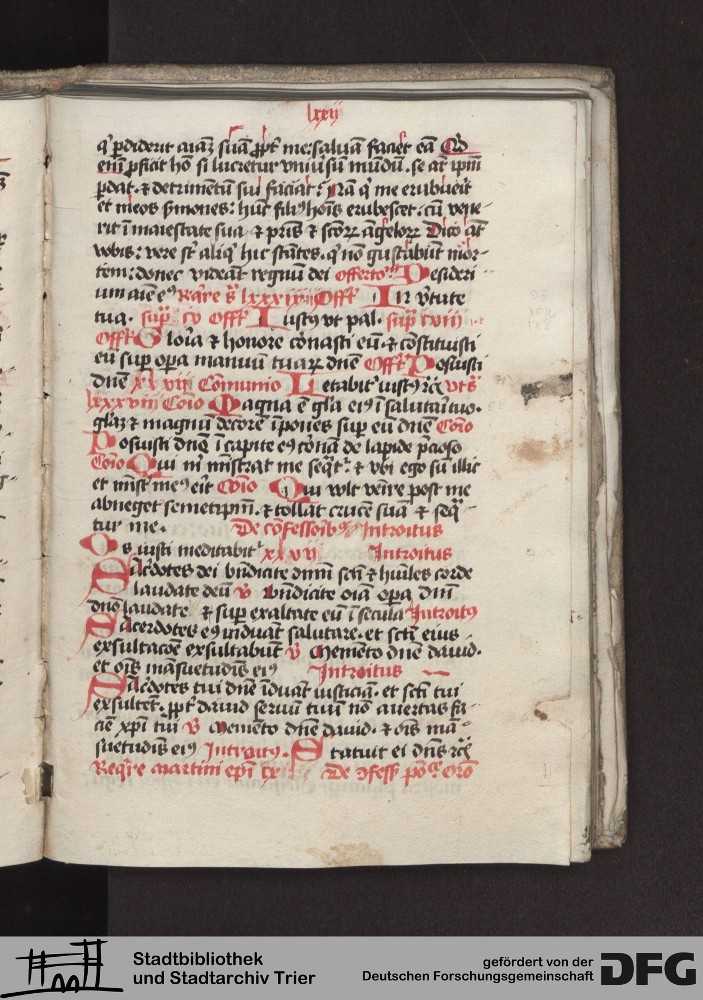 lxxij
q͛ p̱diderit aīaʒ suā ꝓpt͛ me: saluā faciet eā Qͥd
eni͞ ꝓficit hō si lucretur vniu͛sū mūdū. se aūt ip̄m
ꝑdat. ⁊ detrimētū sui faciat? Nā qͥ me erubu͛it
et meos s͛mones: hūc filiꝰ hoīs erubescet. cū vene
rit ī maiestate sua ⁊ pr̄is ⁊ sc̄orꝝ āgelorꝝ Dico aūt
vobis: vere st̄ aliqͥ hic stātes. qͥ nō gustabūt mor
tem: donec videāt regnū dei offertoͬ Desideri
um aīe eꝰ Req͛re lxxxiiij Offͭ In v͛tute
tua. sup͛ cv Offͭ Iustꝰ vt pal. sup͛ cviij
Offͭ Gloria ⁊ honore coronasti eū. ⁊ cōstituisti
eū sup͛ oꝑa manuū tuarꝝ dn̄e Offͭ Posuisti
dn̄e xlviij Cōmunio Letabit͛ iustꝰ
lxxxviij Cōio Magna ē gl̄a eiꝰ ī salutari tuo.
gl̄aʒ ⁊ magnū decorē īpones sup͛ eū dn̄e Cōio
Posuisti dn̄e ī capite eꝰ coronā de lapide p͛cioso
Cōio Qui mͥ mīstrat me seq̄t͛. ⁊ vbi ego sū illic
et minist͛ meꝰ erit Cōio Qui vult venire post me
abneget semetip̄m. ⁊ tollat crucē suā ⁊ seq̄
tur me. De cōfessoribꝰ Introitus
Os iusti meditabit͛ xlvij Introitus
Sac͛dotes dei bn̄dicite dn̄m sc̄i ⁊ hūiles corde
laudate deū ꝟ Bn̄dicite oīa oꝑa dn̄i
dn̄o laudate ⁊ sup͛ exaltate eū ī secula Introitꝰ
Sacerdotes eꝰ induā salutare. et sc̄i eius
exsultacōe exsultabūt ꝟ Memēto dn̄e dauid.
et oīs māsuetudīs eiꝰ Introitus
Sac͛dotes tui dn̄e īduāt iusticiā. et sc̄i tui
exsultēt. ꝓpt͛ dauid seruū tuū nō auertas fa
ciē xp̄i tui ꝟ Memēto dn̄e dauid. ⁊ oīs mā
suetudīs eiꝰ Introitꝰ. Statuit ei dn̄s
Req͛re martini ep̄i De ꝯfess͛
Stadtbibliothek
und Stadtarchiv Trier
gefördert von der
Deutschen Forschungsgemeinschaft
DFG